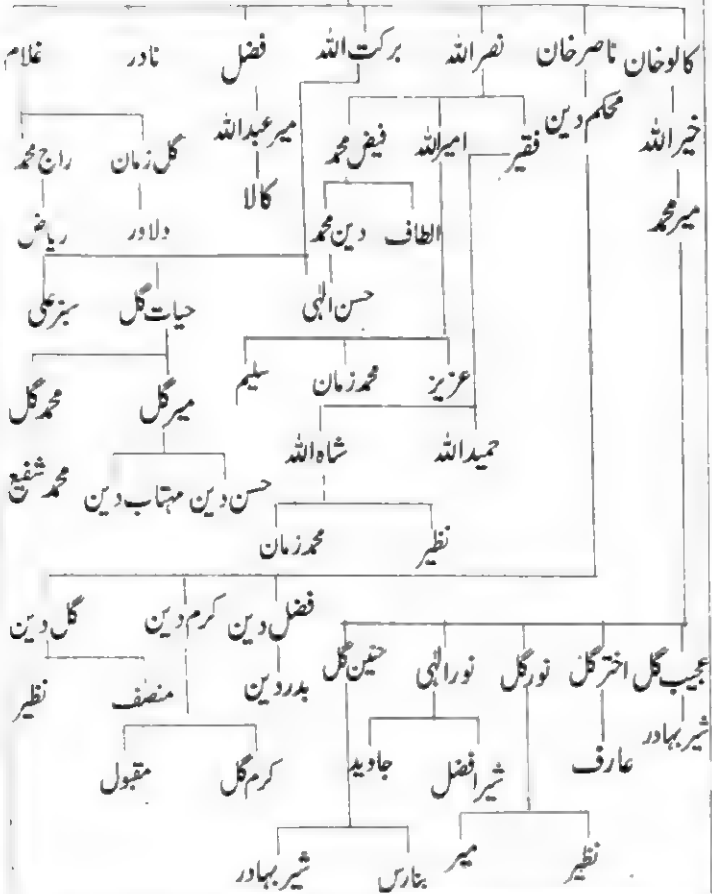 کالوخان ناصرخان نصراللہ برکت اللہ فضل نادر غلام
محکم دین خیراللہ
فقیر امیراللہ فیض محمد میرعبداللہ گل زمان راج محمد
میرمحمد الطاف دین محمد کالا دلاور ریاض
حسن الٰہی حیات گل سبزعلی
عزیز محمدزمان سلیم میرگل محمدگل
حمیداللہ شاہ اللہ حسن دین مہتاب دین محمدشفیع
نظیر محمدزمان
فضل دین کرم دین گل دین
عجیب گل اخترگل نورگل نورالٰہی حنین گل بدردین منصف نظیر
شیربہادر عارف شیرافضل جاوید کرم گل مقبول
نظیر میر بنارس شیربہادر